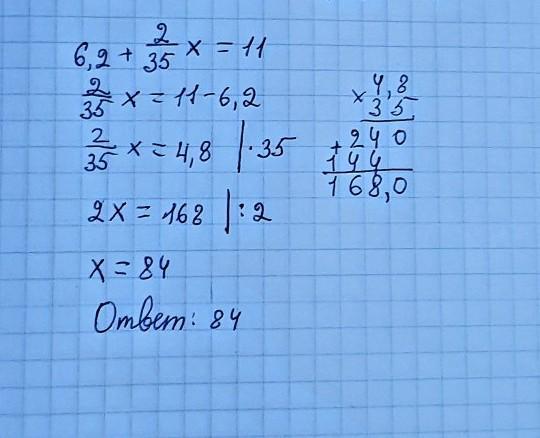 6,2 + 2/35 x = 11
2/35 x = 11 - 6,2
2/35 x = 4,8 | · 35
2x = 168 | : 2
x = 84
Ответ: 84
× 4,8
35
+ 240
144
168,0